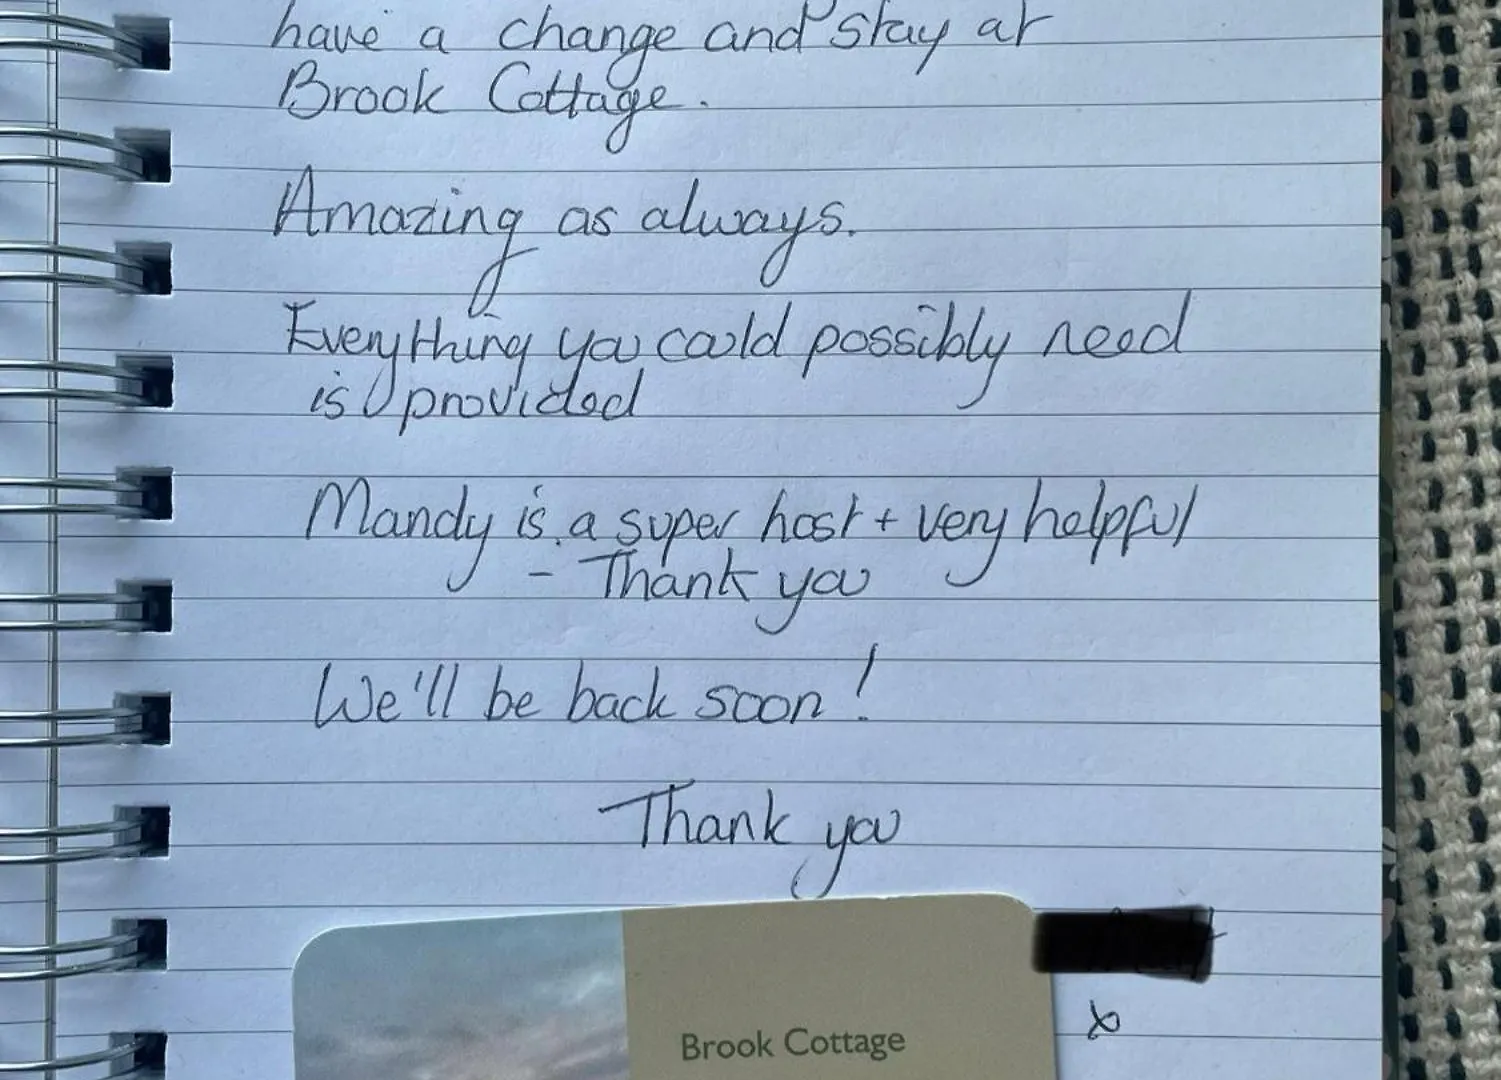 have a change and stay at
Brook Cottage.
Amazing as always.
Everything you could possibly need
is provided
Mandy is a super host + very helpful
- Thank you
We'll be back soon!
Thank you
x
Brook Cottage